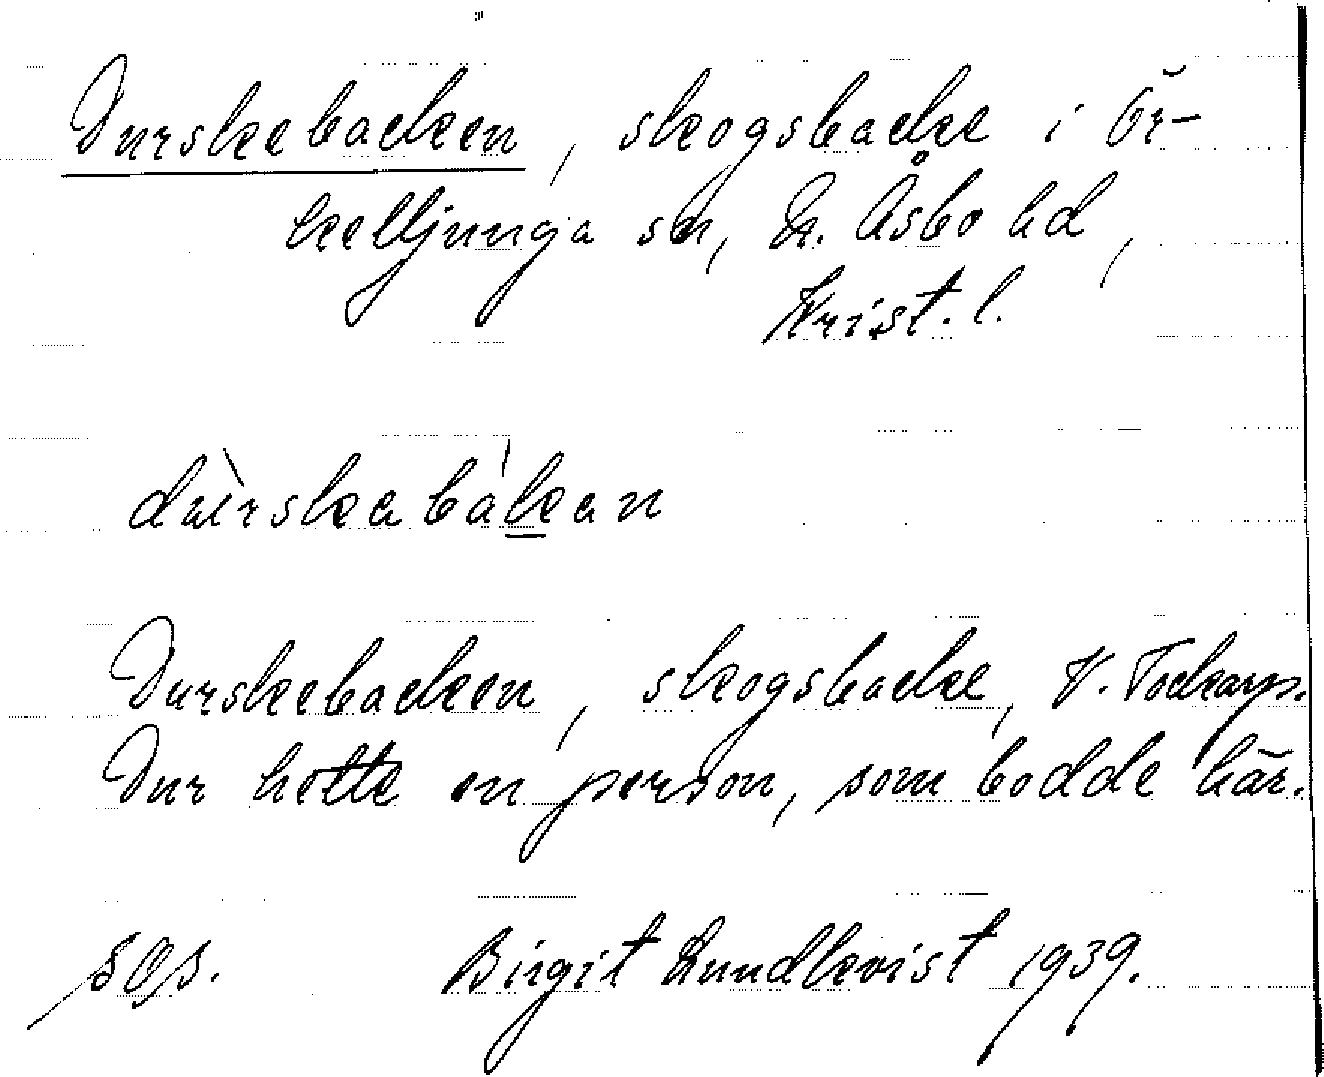 Durskebacken, skogsbacke i Ör-
kelljunga sn, N. Åsbo hd,
Krist. l.
dùrskabàkan
Durskebacken, skogsbacke, V. Tockarp.
Dur hette en person, som bodde här.
sgs. Birgit Lundkvist 1939.